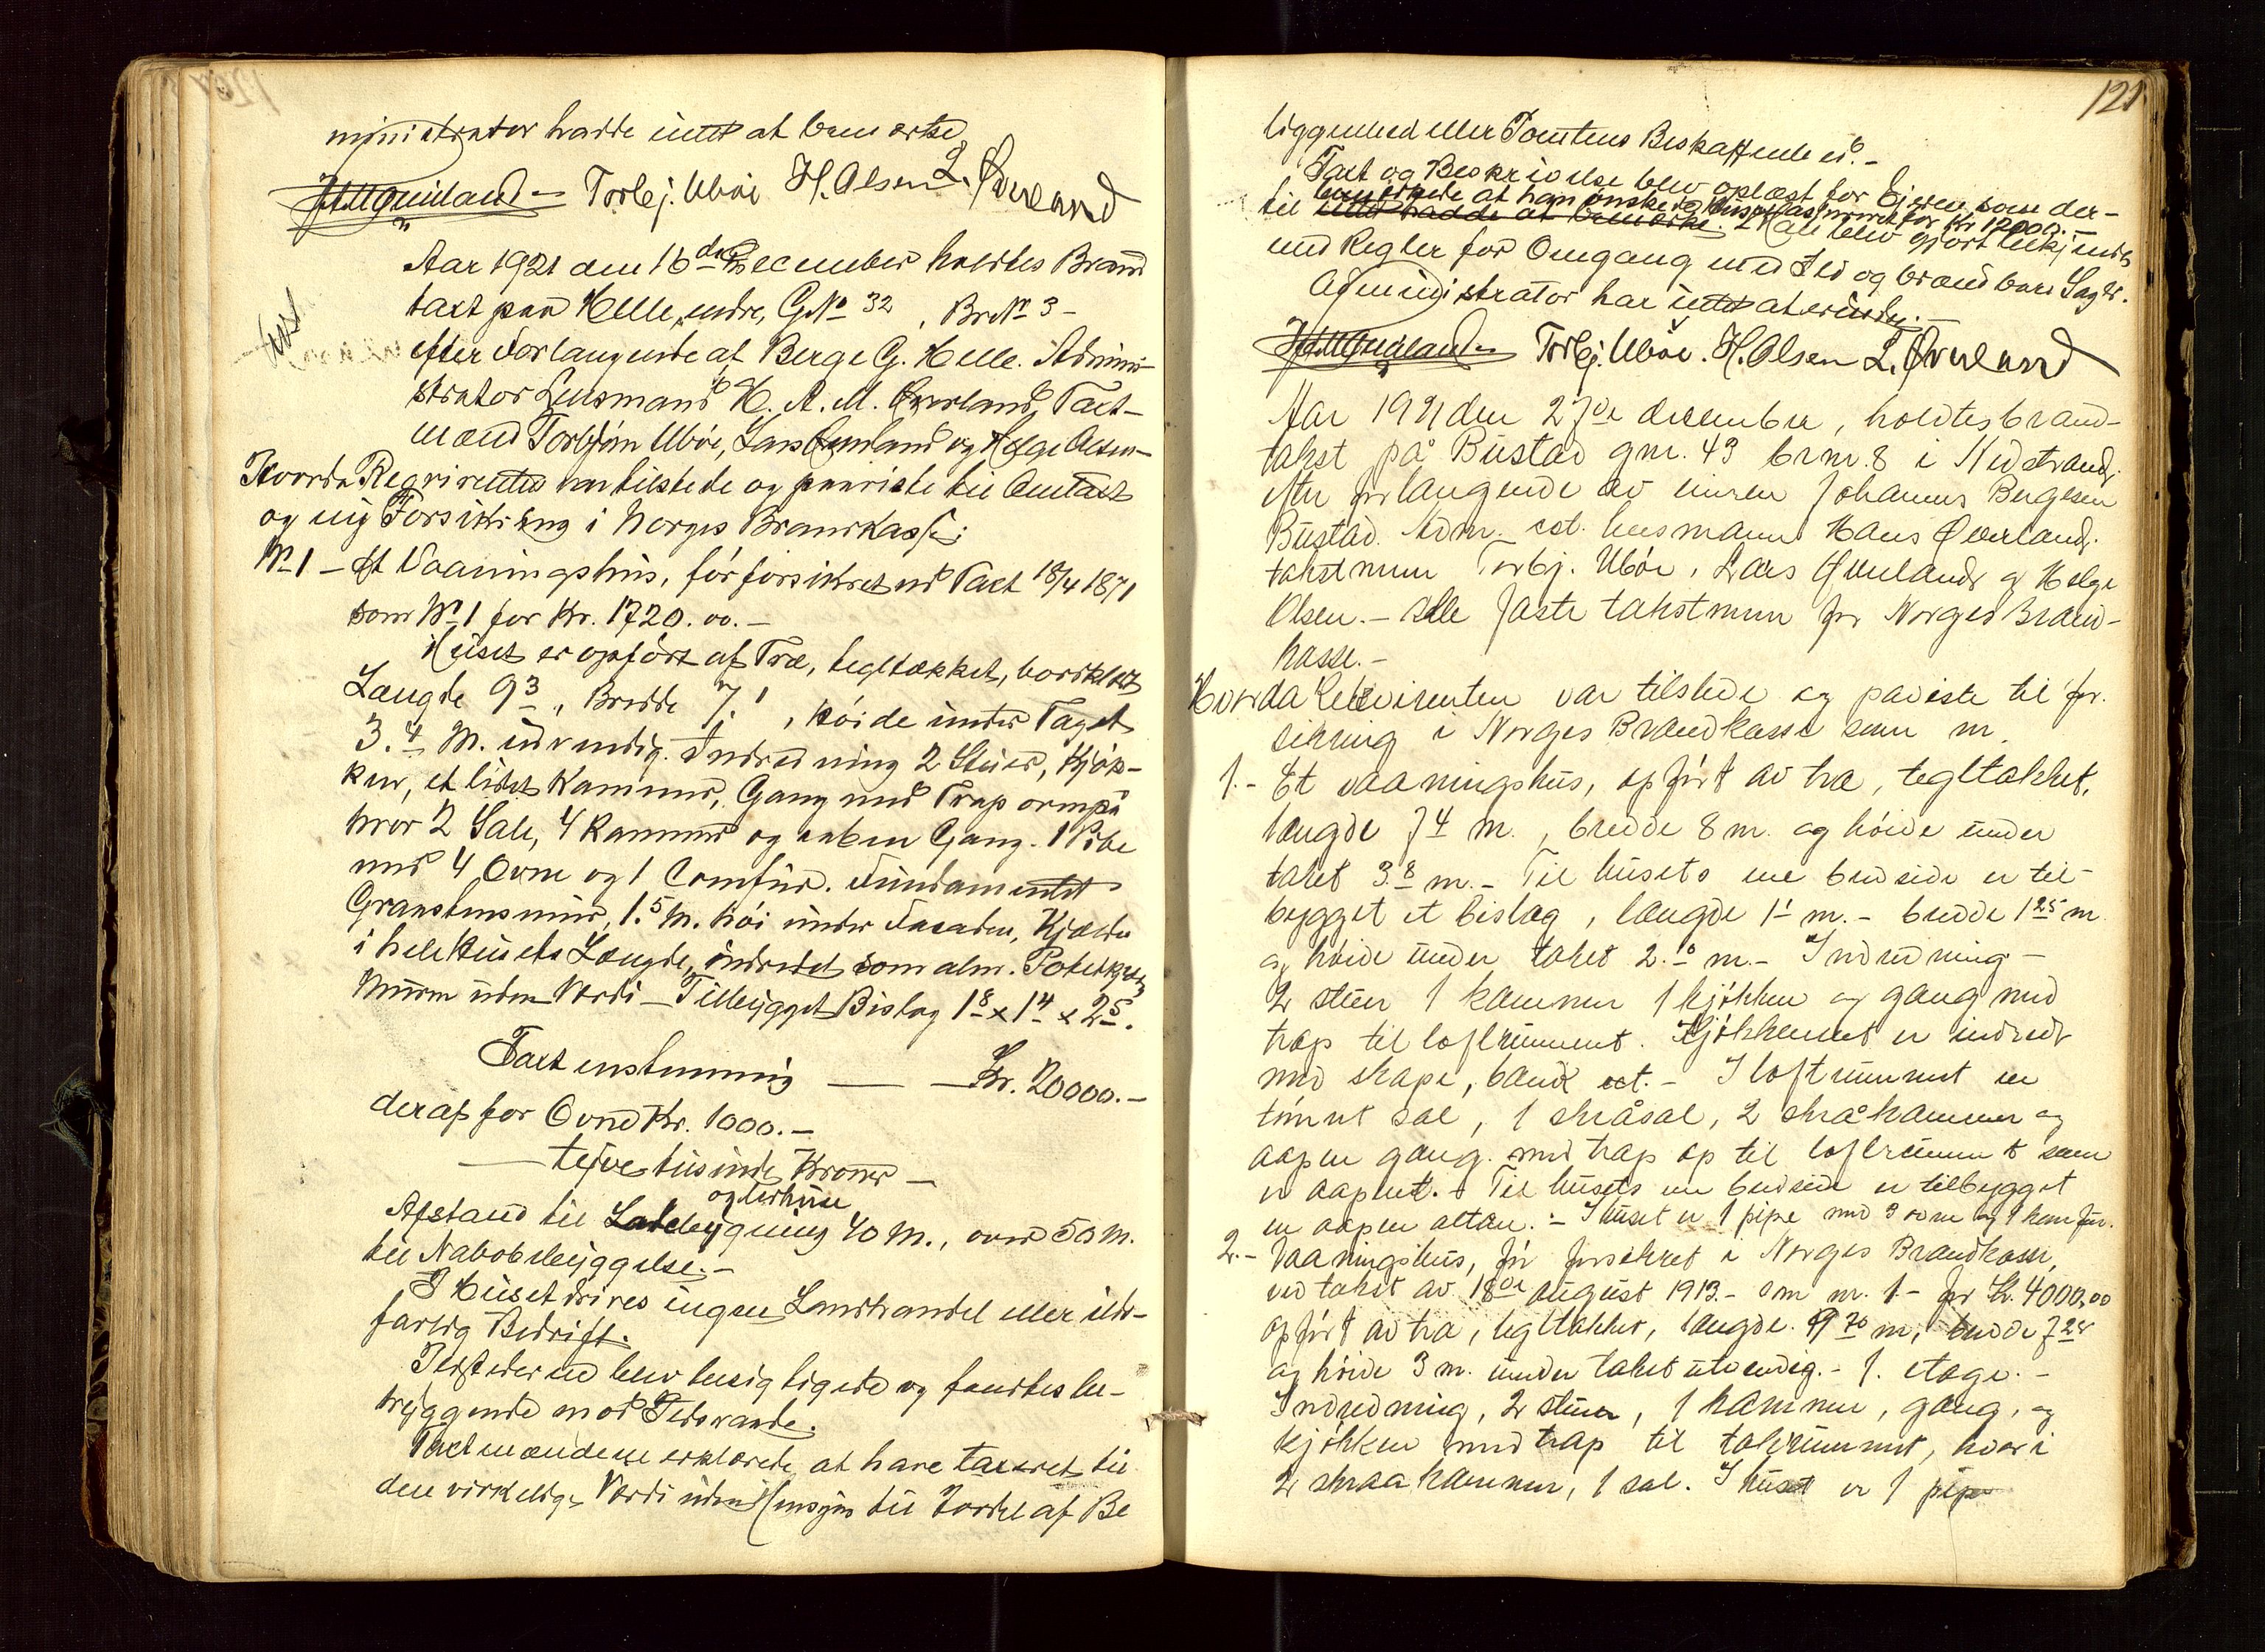 ministrator hadde intet at bemerke
Torbj. Ubøe H. Olsen L. Øverland
Aar 1921 den 16de December holdtes Brand
taxt paa Helle, indre, GNo 32, BrNo 3 -
efter Forlangende af Berge G. Helle. Admini-
strator Lensmand H. A. M. Øverland, Taxt-
mænd Torbjørn Ubøe, Lars Øverland og Helge Olsen -
Hvorda Reqvirenten var tilstede og paaviste til Omtaxt
og ny Forsikring i Norges Brandkasse:
No 1 - Et Vaaningshus, før forsikret ved Taxt 18/4 1871
som No 1 for Kr. 1720.00. -
Huset er opført af Træ, tegltækket, bordklædt
Længde 9.3, Bredde 7.1, Høide under Taget
3.4 M. udvendig. Indredning 2 Stuer, Kjøk-
ken, et lidet Kammer, Gang med Trap ovenpaa
hvor 2 Sale, 4 Kammer og aaben Gang. 1 Pibe
med 4 Ovne og 1 Comfur. Fundamentet
Graastensmur, 1.5 M. høi under Facaden, Kjælder
i hele Husets Længde, indredet som alm. Potetkjeld
Muren uden Værdi - Tilbygget Bislag 1.8 x 1.4 x 2.5.
Taxt enstemmig — Kr. 20000. -
deraf for Ovne Kr. 1000. -
— tyve tusinde Kroner —
og Udhuse
Afstand til Ladebygning 40 M., over 50 M.
til Nabobebyggelse. -
I Huset drives ingen Landhandel eller ild-
farlig Bedrift.
Ildstederne blev besigtigede og fandtes be-
tryggende mod Ildsvaade.
Taxtmændene erklærede at have taxeret til
den virkelige Værdi uden Hensyn til Fordel af Be
121
liggenhed eller Tomtens Beskaffenhed. -
Taxt og Beskrivelse blev oplæst for Ejeren som der-
bemerkede at han ønskede Huset assureret for Kr 12000. -
til intet hadde at bemerke. Han blev gjort bekjendt
med Regler for Omgang med Ild og brændbare Sager.
Administrator har intet at erindre. -
Torbj. Ubøe. H. Olsen L. Øverland
Aar 1921 den 27de december, holdtes brand-
takst på Bustad gnr. 43 brnr. 8 i Nedstrand,
efter forlangende av eieren Johannes Bergesen
Bustad. Adm. cst. lensmann Hans Øverland,
takstmenn Torbj. Ubøe, Lars Øverland og Helge
Olsen. - Alle faste takstmenn for Norges Brand-
kasse. -
Hvorda Rekvirenten var tilstede og påviste til for-
sikring i Norges Brandkasse som nr.
1. - Et vaaningshus, opført av træ, tegltækket,
længde 7.4 m., bredde 8 m. og høide under
taket 3.8 m. - Til husets ene bredside er til-
bygget et bislag, længde 1.1 m. - bredde 1.25 m
og høide under taket 2.0 m. - Indredning -
2 stuer 1 kammer 1 kjøkken og gang med
trap til loftrummet. Kjøkkenet er indredt
med skape, bænk ect. - I loftrummet en
tømret sal, 1 skråsal, 2 skråkammer og
aapen gang. med trap op til loftrummet som
er aapent. - Til husets ene bredside er tilbygget
en aapen altan. - I huset er 1 pipe med 3 ovne og 1 komfur.
2. - Vaaningshus, før forsikret i Norges Brandkasse,
ved takst av 18de august 1913. - som nr. 1 - for Kr. 4000,00
opført av træ, tegltækket, længde 9.70 m, bredde 7.28
og høide 3 m. under taket utvendig. - 1. etage. -
Indredning, 2 stuer, 1 kammer, gang, og
kjøkken med trap til takrummet, hvori
2 skraakammer, 1 sal. I huset er 1 pipe